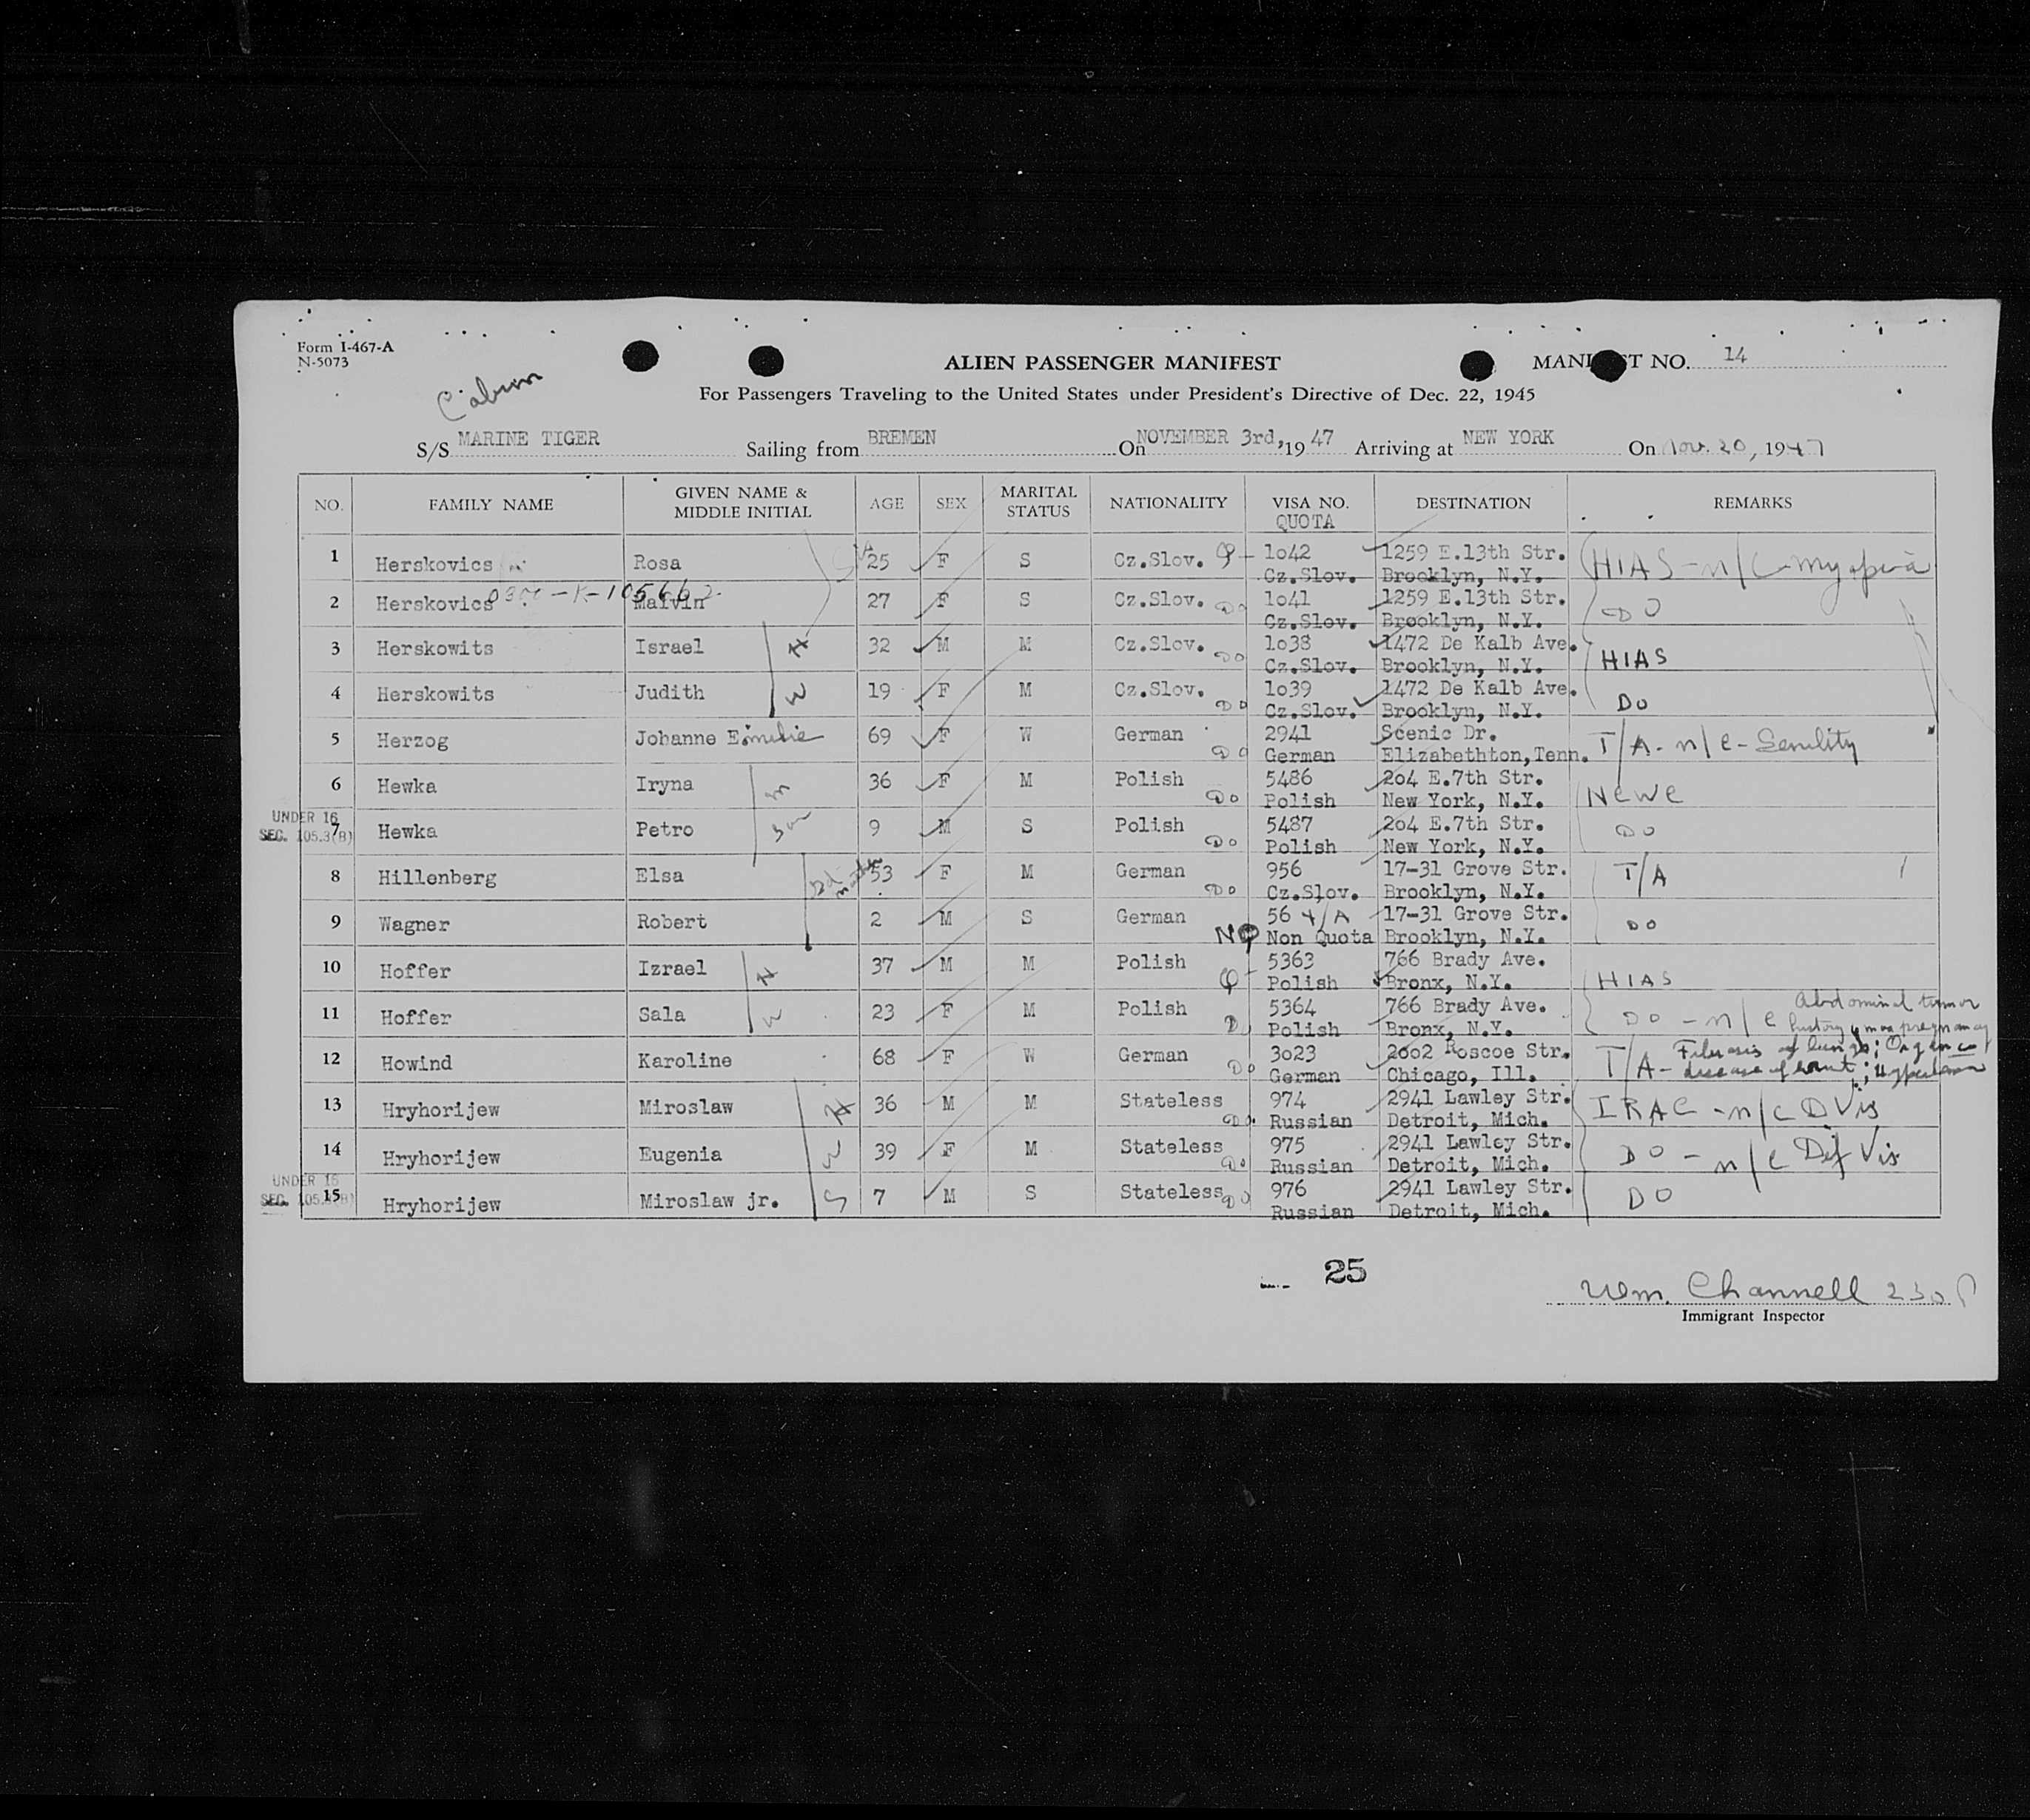 Form I-467-A
N-5073
Cabin
ALIEN PASSENGER MANIFEST
MANI T NO. 14
For Passengers Traveling to the United States under President's Directive of Dec. 22, 1945
S/S MARINE TIGER Sailing from BREMEN On NOVEMBER 3rd, 19 47 Arriving at NEW YORK On Nov. 20, 1947
NO. FAMILY NAME GIVEN NAME & MIDDLE INITIAL AGE SEX MARITAL STATUS NATIONALITY VISA NO. QUOTA DESTINATION REMARKS
1 Herskovics Rosa 25 F S Cz.Slov. Q- 1o42 1259 E.13th Str. HIAS - n/c - myopia
Cz.Slov. Brooklyn, N.Y.
K-105662
2 Herskovics Malvin 27 F S Cz.Slov. DO 1o41 1259 E.13th Str. DO
Cz.Slov. Brooklyn, N.Y.
3 Herskowits Israel H 32 M M Cz.Slov. DO 1o38 1472 De Kalb Ave. HIAS
Cz.Slov. Brooklyn, N.Y.
4 Herskowits Judith W 19 F M Cz.Slov. DO 1o39 1472 De Kalb Ave. DO
Cz.Slov. Brooklyn, N.Y.
5 Herzog Johanne Emilie 69 F W German DO 2941 Scenic Dr. T/A - n/c - Senility
German Elizabethton,Tenn.
6 Hewka Iryna m 36 F M Polish DO 5486 2o4 E.7th Str. NCWC
Polish New York, N.Y.
UNDER 16
SEC. 105.3(B)
7 Hewka Petro son 9 M S Polish DO 5487 2o4 E.7th Str. DO
Polish New York, N.Y.
8 Hillenberg Elsa Gd mother 53 F M German DO 956 17-31 Grove Str. T/A
Cz.Slov. Brooklyn, N.Y.
9 Wagner Robert 2 M S German NQ 56 17-31 Grove Str. DO
Non Quota Brooklyn, N.Y.
10 Hoffer Izrael H 37 M M Polish Q- 5363 766 Brady Ave. HIAS
Polish Bronx, N.Y.
11 Hoffer Sala W 23 F M Polish D 5364 766 Brady Ave. DO - n/c Abdominal tumor
Polish Bronx, N.Y. history pregnancy
12 Howind Karoline 68 F W German DO 3o23 2oo2 Roscoe Str. T/A - Fibrosis of lungs; Organic
German Chicago, Ill. disease of heart;
13 Hryhorijew Miroslaw H 36 M M Stateless DO 974 2941 Lawley Str. IRAC - n/c D Vis
Russian Detroit, Mich.
14 Hryhorijew Eugenia W 39 F M Stateless DO 975 2941 Lawley Str. DO - n/c Def Vis
Russian Detroit, Mich.
UNDER 16
SEC. 105.3(B)
15 Hryhorijew Miroslaw jr. S 7 M S Stateless DO 976 2941 Lawley Str. DO
Russian Detroit, Mich.
25
Wm. Channell
Immigrant Inspector